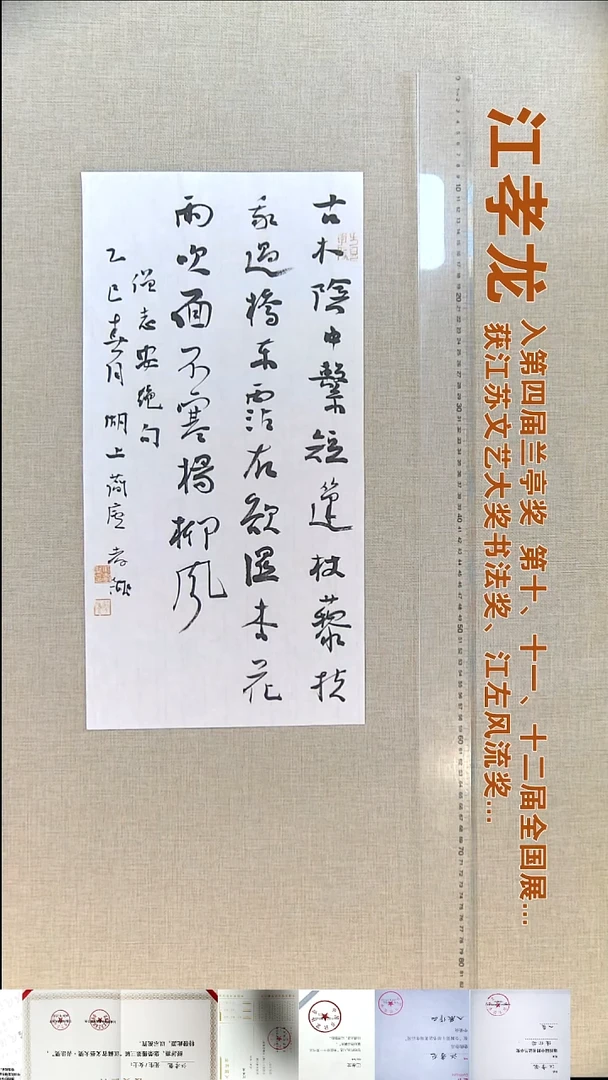 江孝龙
入第四届兰亭奖 第十、十一、十二届全国展...
获江苏文艺大奖书法奖、江左风流奖...
古木陰中繫短篷杖藜扶
我過橋東霑衣欲溼杏花
雨吹面不寒楊柳風
僧志安绝句
乙巳春月 湖上